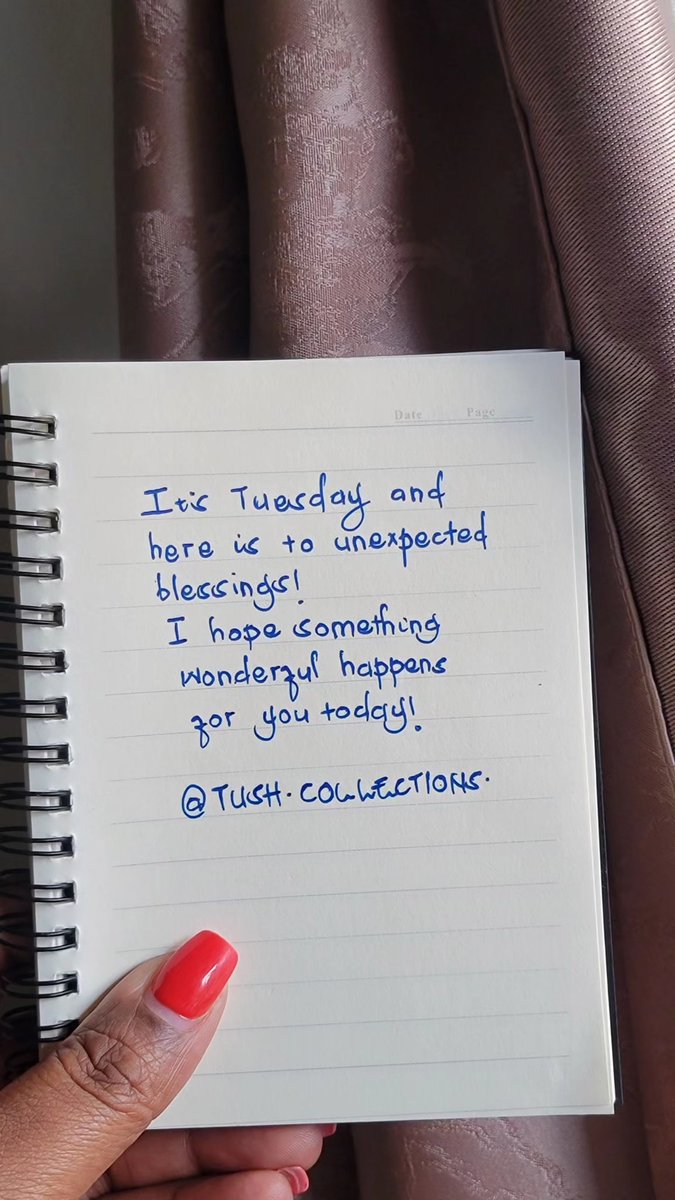 Date Page
It's Tuesday and
here is to unexpected
blessings!
I hope something
wonderful happens
for you today!
@TUSH.COLLECTIONS.